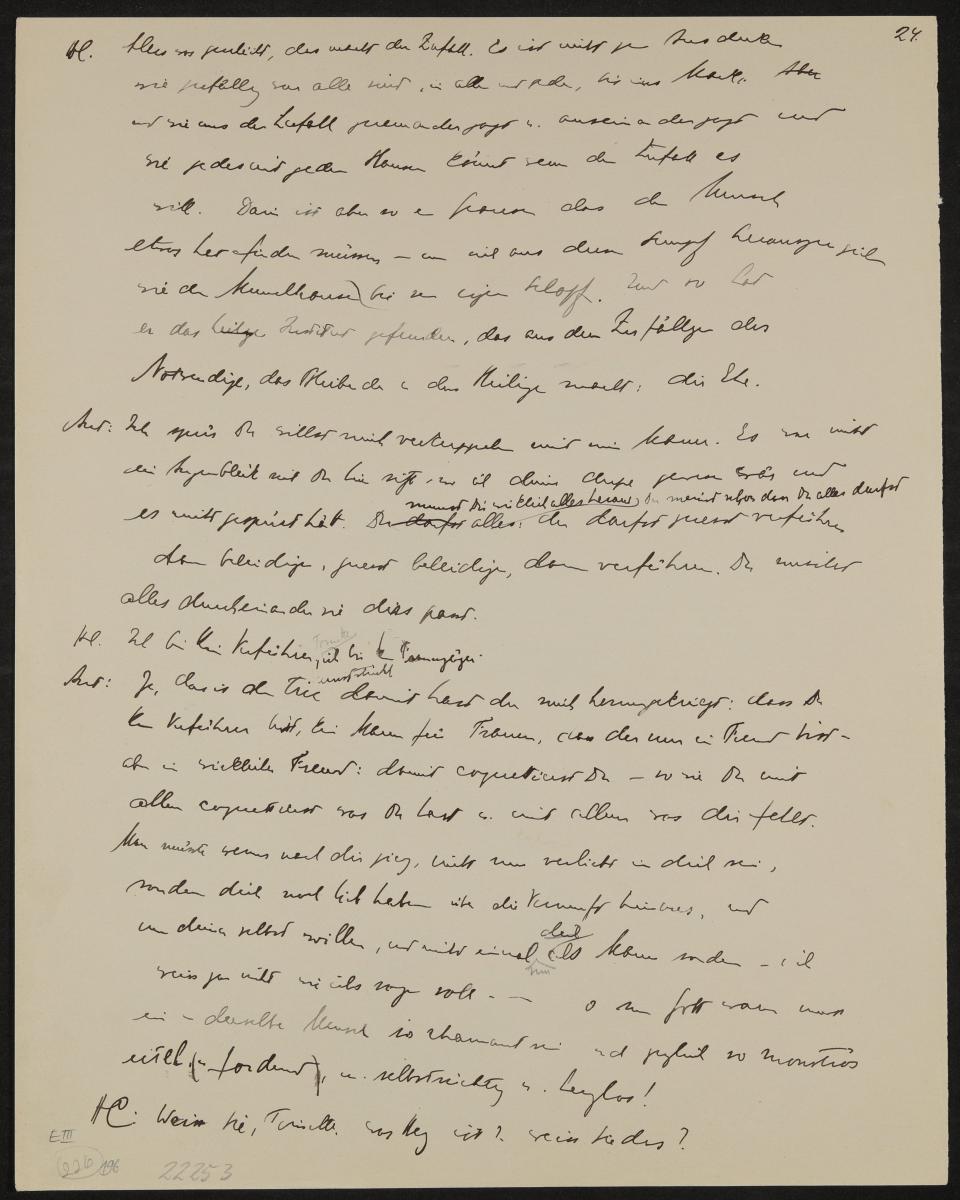 24.
H. Alles was geschieht, das macht der Zufall. Es ist nicht zum Ausdenken
wie zufällig wir alle sind, und wie
uns der Zufall zueinanderjagt u. auseinanderjagt und
wie jeder mit jedem Hausen könnte wenn der Zufall es
will. Darin ist aber so ein Grausen dass der Mensch
etwas hat finden müssen – um sich aus diesem Sumpf herauszuziehn
wie der Münchhausen bei seinem eigenen Schopf. Und so hat
er das Institut gefunden, das aus dem Zufälligen das
Notwendige, das Bleibende u das Heilige macht: die Ehe.
Ant: Ich spür Du willst mich verkuppeln mit mein Mann. Es war nicht
ein Augenblick seit Du hier sitzt, wo ich das gewusst und
nimmst Dir wirklich alles heraus; Du meinst schon dass Du alles darfst
es nicht gespürt hätt. Du darfst alles: du darfst zuerst verführen
dann beleidigen, zuerst beleidigen, dann verführen. Du mischst
alles durcheinander wie dirs passt.
H. Ich bin kein Verführer, ich bin kein Frauenjäger.
Ant: Ja, das ist der Tric damit hast du mich herumgekriegt: dass Du
kein Verführer bist, kein Mann für Frauen, dass du nur ein Freund bist –
aber ein wirklicher Freund: damit coquettierst Du – so wie Du mit
allem coquettierst was Du hast u. mit allem was dir fehlt.
Man müsste wenns nach dir ging, nicht nur verliebt in dich sein,
sondern dich noch lieb haben über die Vernunft hinaus, und
um deiner selbst willen, und nicht einmal
dich
nur
als Mann sondern – ich
weiss gar nicht wie ichs sagen soll – – o mein Gott warum muss
ein – derselbe Mensch so charmant sein und zugleich so monströs
eitel, (u. fordernd), u. selbstsüchtig u. herzlos!
H. Weiss Sie, Toinette was Herz ist? weiss Sie das?
E III
226 196
22253